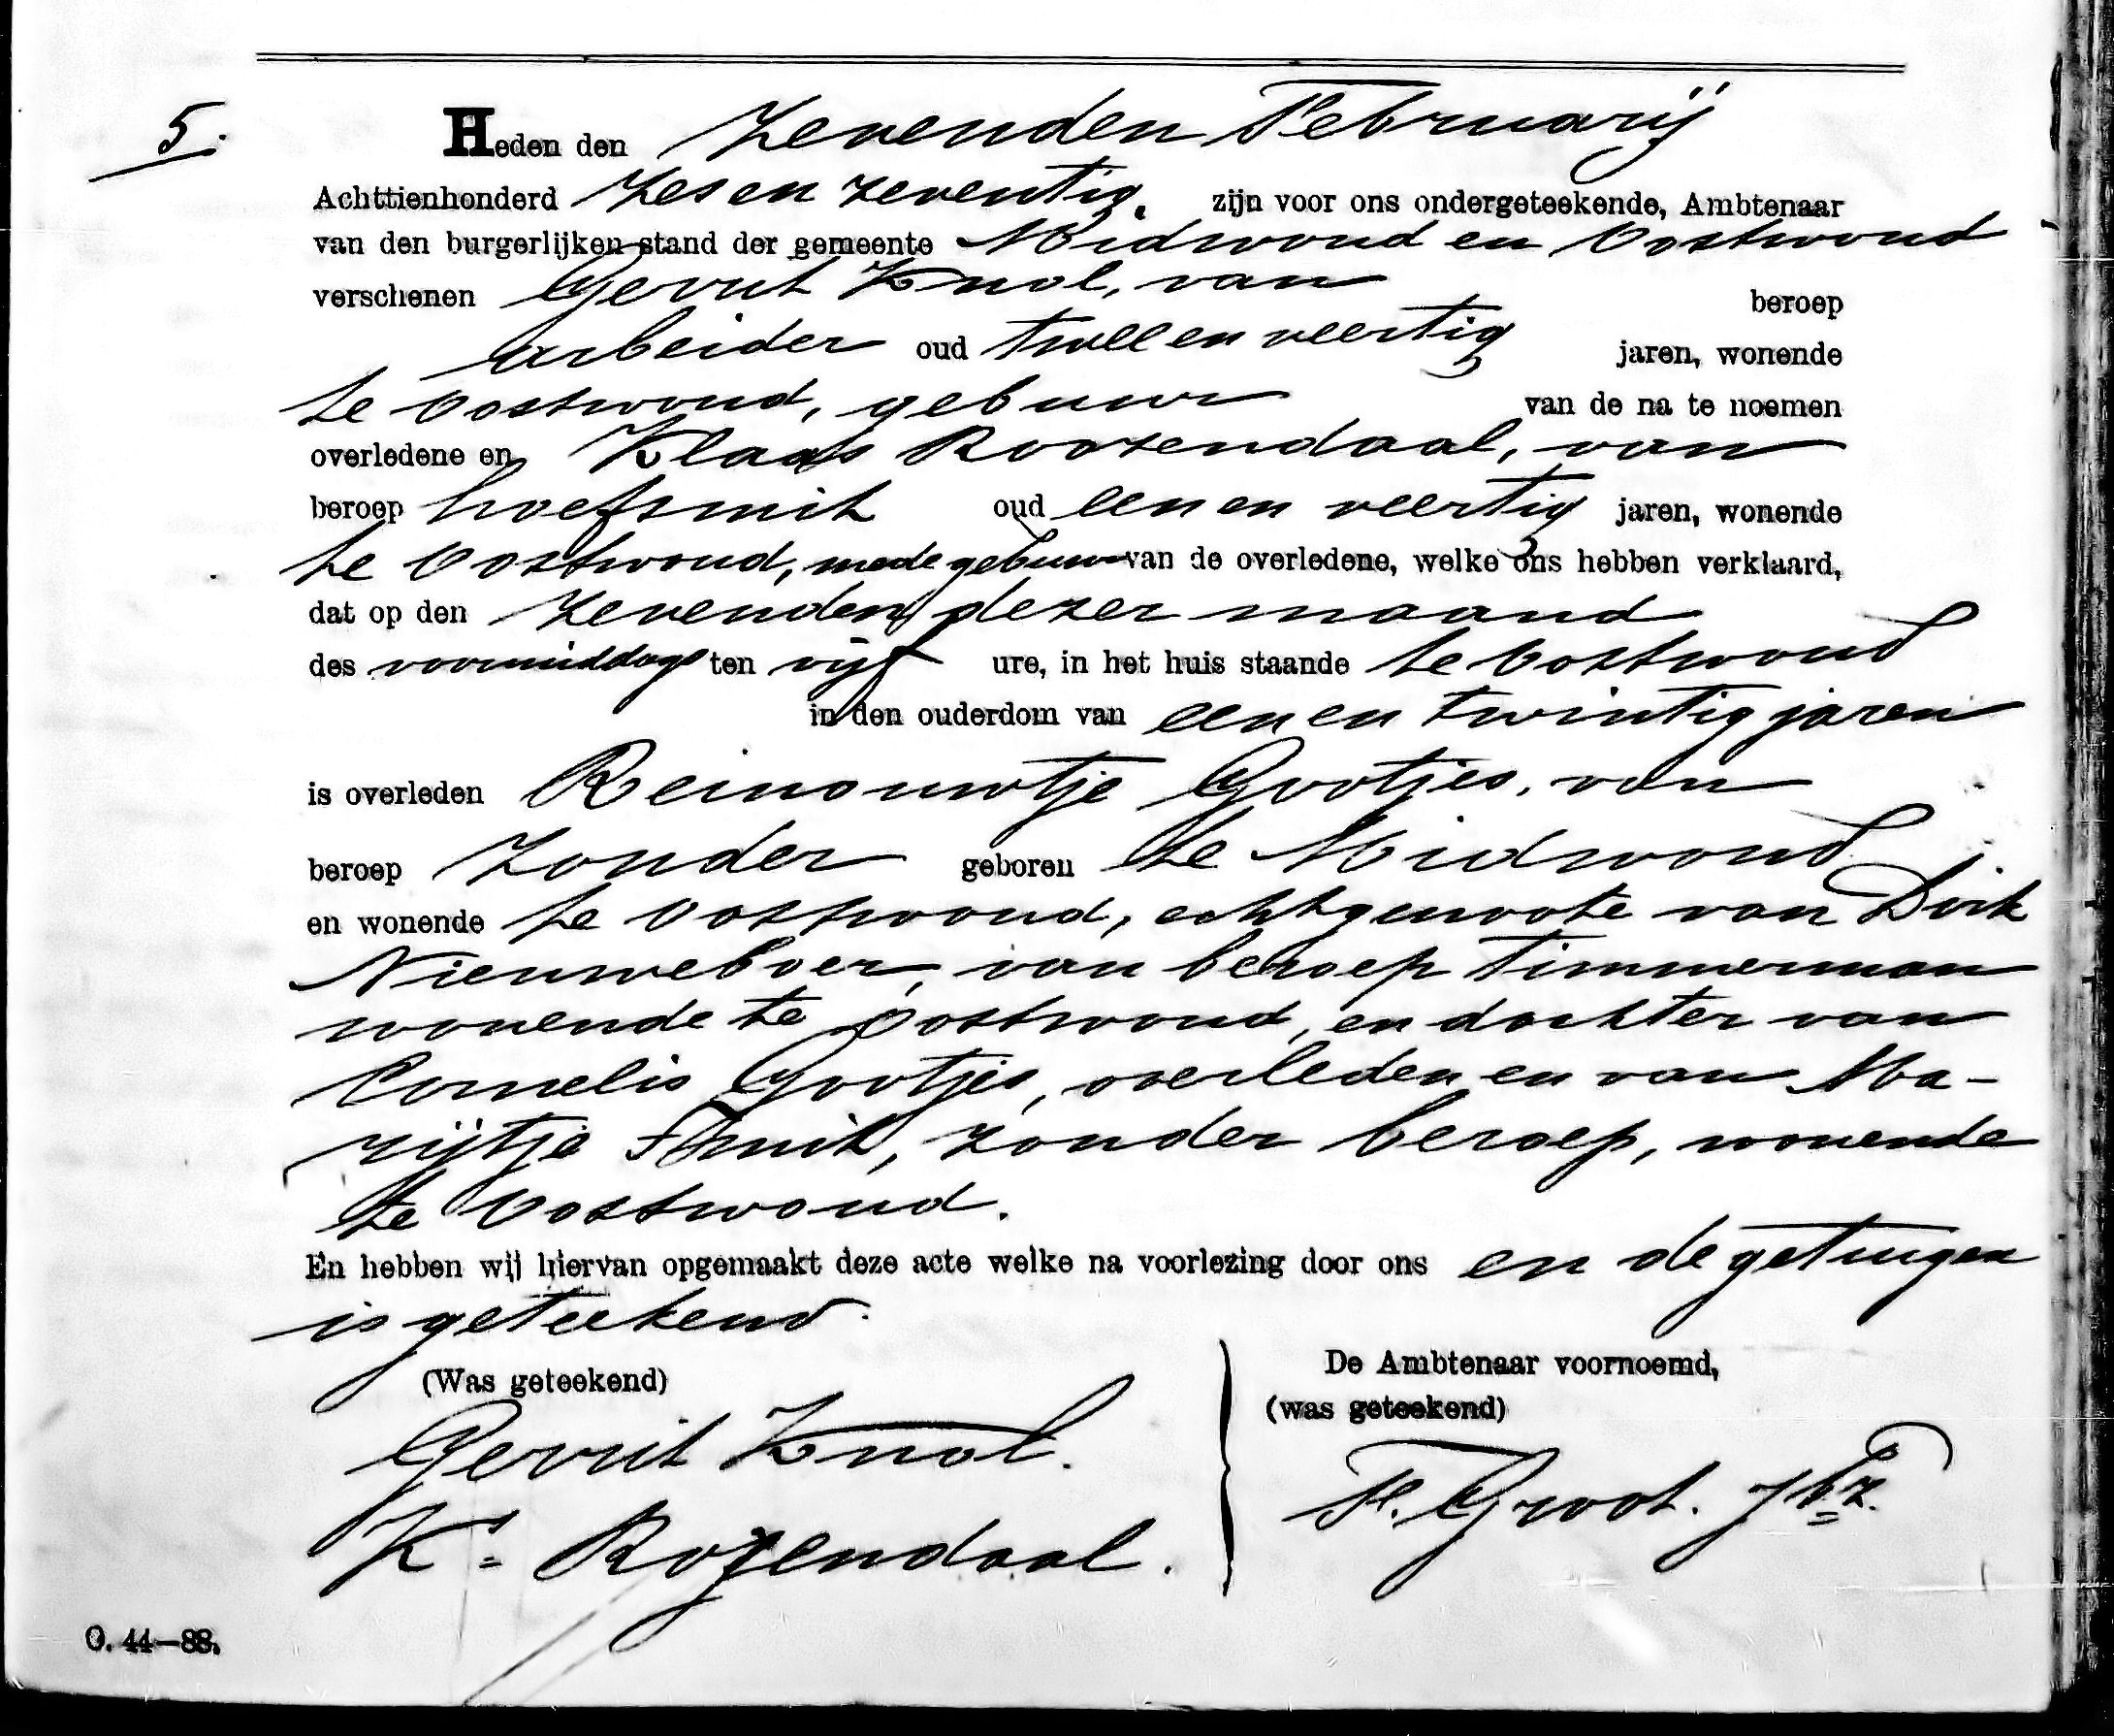 5.
Heden den Zevenden Februarij
Achttienhonderd Zes en zeventig. zijn voor ons ondergeteekende, Ambtenaar
van den burgerlijken stand der gemeente Midwoud en Oostwoud
verschenen Gerrit Knol, van beroep
arbeider oud twee en veertig jaren, wonende
te Oostwoud, gebuur van de na te noemen
overledene en Klaas Roozendaal, van
beroep hoefsmit oud een en veertig jaren, wonende
te Oostwoud, mede gebuur van de overledene, welke ons hebben verklaard,
dat op den Zevenden dezer maand
des voormiddags ten vijf ure, in het huis staande te Oostwoud
in den ouderdom van een en twintig jaren
is overleden Reinouwtje Grootjes, van
beroep Zonder geboren te Midwoud
en wonende te Oostwoud, echtgenoote van Dirk
Nieuweboer, van beroep timmerman
wonende te Oostwoud, en dochter van
Cornelis Grootjes, overleden, en van Ma-
rijtje Smit, zonder beroep, wonende
te Oostwoud.
En hebben wij hiervan opgemaakt deze acte welke na voorlezing door ons en de getuigen
is geteekend.
(Was geteekend)
Gerrit Knol.
Ks. Rozendaal.
De Ambtenaar voornoemd,
(was geteekend)
P. Groot. Jbz.
O. 44—88.